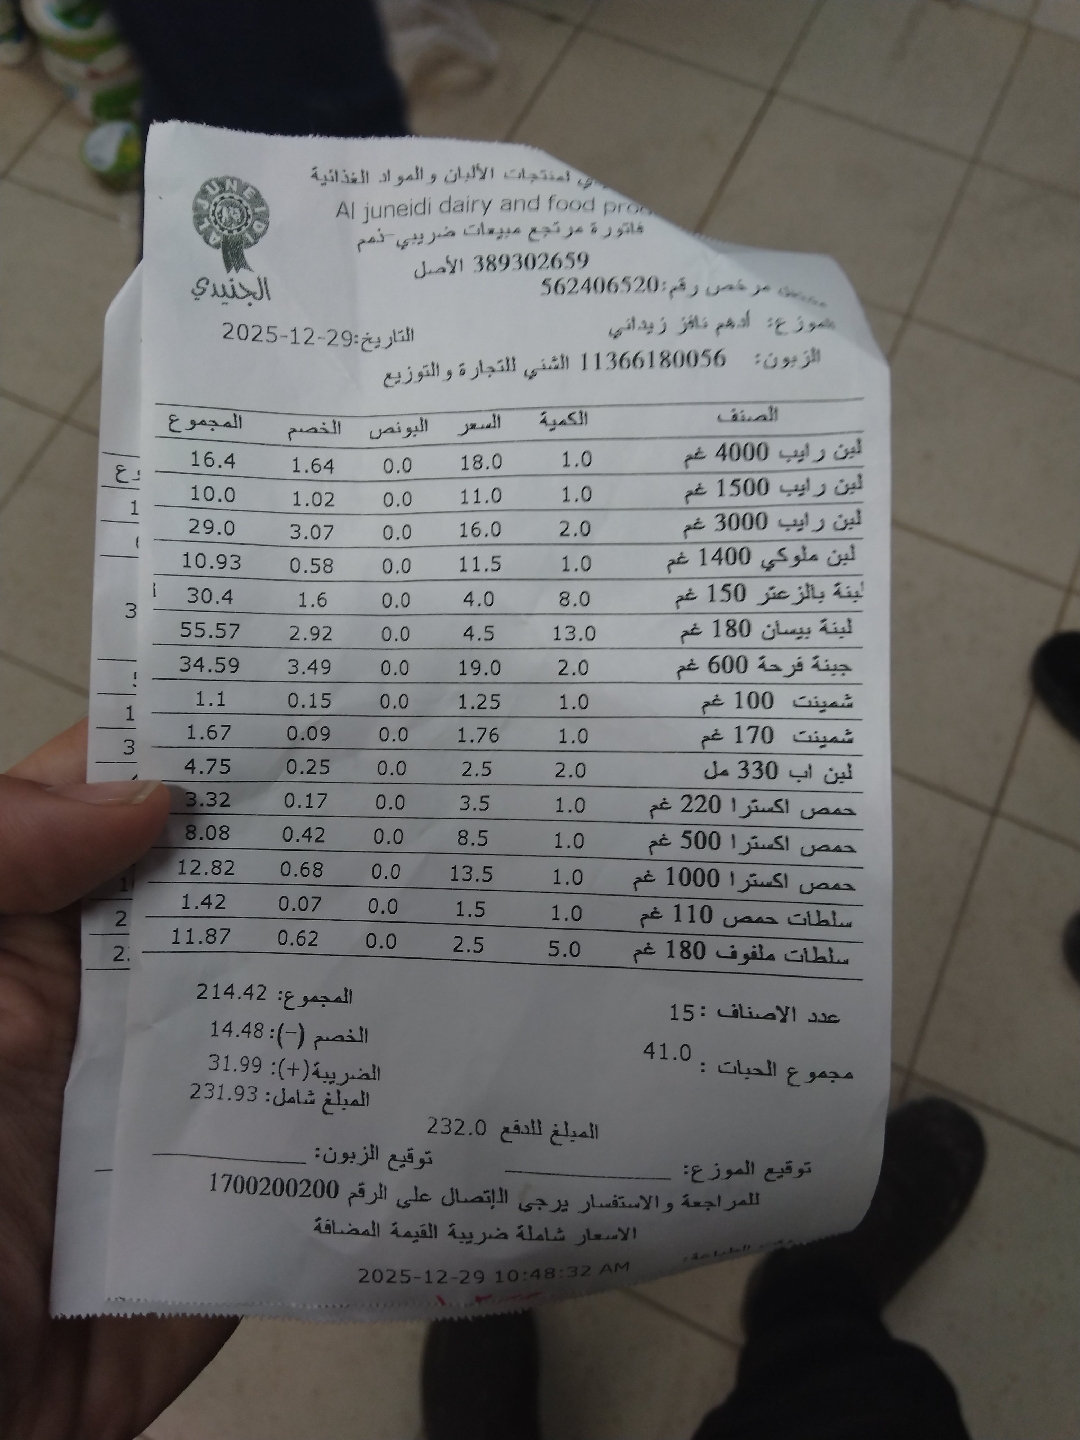 لمنتجات الألبان والمواد الغذائية
Al juneidi dairy and food
AL JUNEIDI
الجنيدي
فاتورة مرتجع مبيعات ضريبي-ذمم
389302659 الأصل
مشتغل مرخص رقم:562406520
الموزع: أدهم نافز زيداني
التاريخ:2025-12-29
الزبون: 11366180056 الشني للتجارة والتوزيع
الصنف الكمية السعر البونص الخصم المجموع
لبن رايب 4000 غم 1.0 18.0 0.0 1.64 16.4
لبن رايب 1500 غم 1.0 11.0 0.0 1.02 10.0
لبن رايب 3000 غم 2.0 16.0 0.0 3.07 29.0
لبن ملوكي 1400 غم 1.0 11.5 0.0 0.58 10.93
لبنة بالزعتر 150 غم 8.0 4.0 0.0 1.6 30.4
لبنة بيسان 180 غم 13.0 4.5 0.0 2.92 55.57
جبنة فرحة 600 غم 2.0 19.0 0.0 3.49 34.59
شمينت 100 غم 1.0 1.25 0.0 0.15 1.1
شمينت 170 غم 1.0 1.76 0.0 0.09 1.67
لبن اب 330 مل 2.0 2.5 0.0 0.25 4.75
حمص اكسترا 220 غم 1.0 3.5 0.0 0.17 3.32
حمص اكسترا 500 غم 1.0 8.5 0.0 0.42 8.08
حمص اكسترا 1000 غم 1.0 13.5 0.0 0.68 12.82
سلطات حمص 110 غم 1.0 1.5 0.0 0.07 1.42
سلطات ملفوف 180 غم 5.0 2.5 0.0 0.62 11.87
عدد الاصناف : 15
المجموع: 214.42
الخصم (-): 14.48
مجموع الحبات : 41.0
الضريبة(+): 31.99
المبلغ شامل: 231.93
المبلغ للدفع 232.0
توقيع الموزع: توقيع الزبون:
للمراجعة والاستفسار يرجى الإتصال على الرقم 1700200200
الاسعار شاملة ضريبة القيمة المضافة
2025-12-29 10:48:32 AM